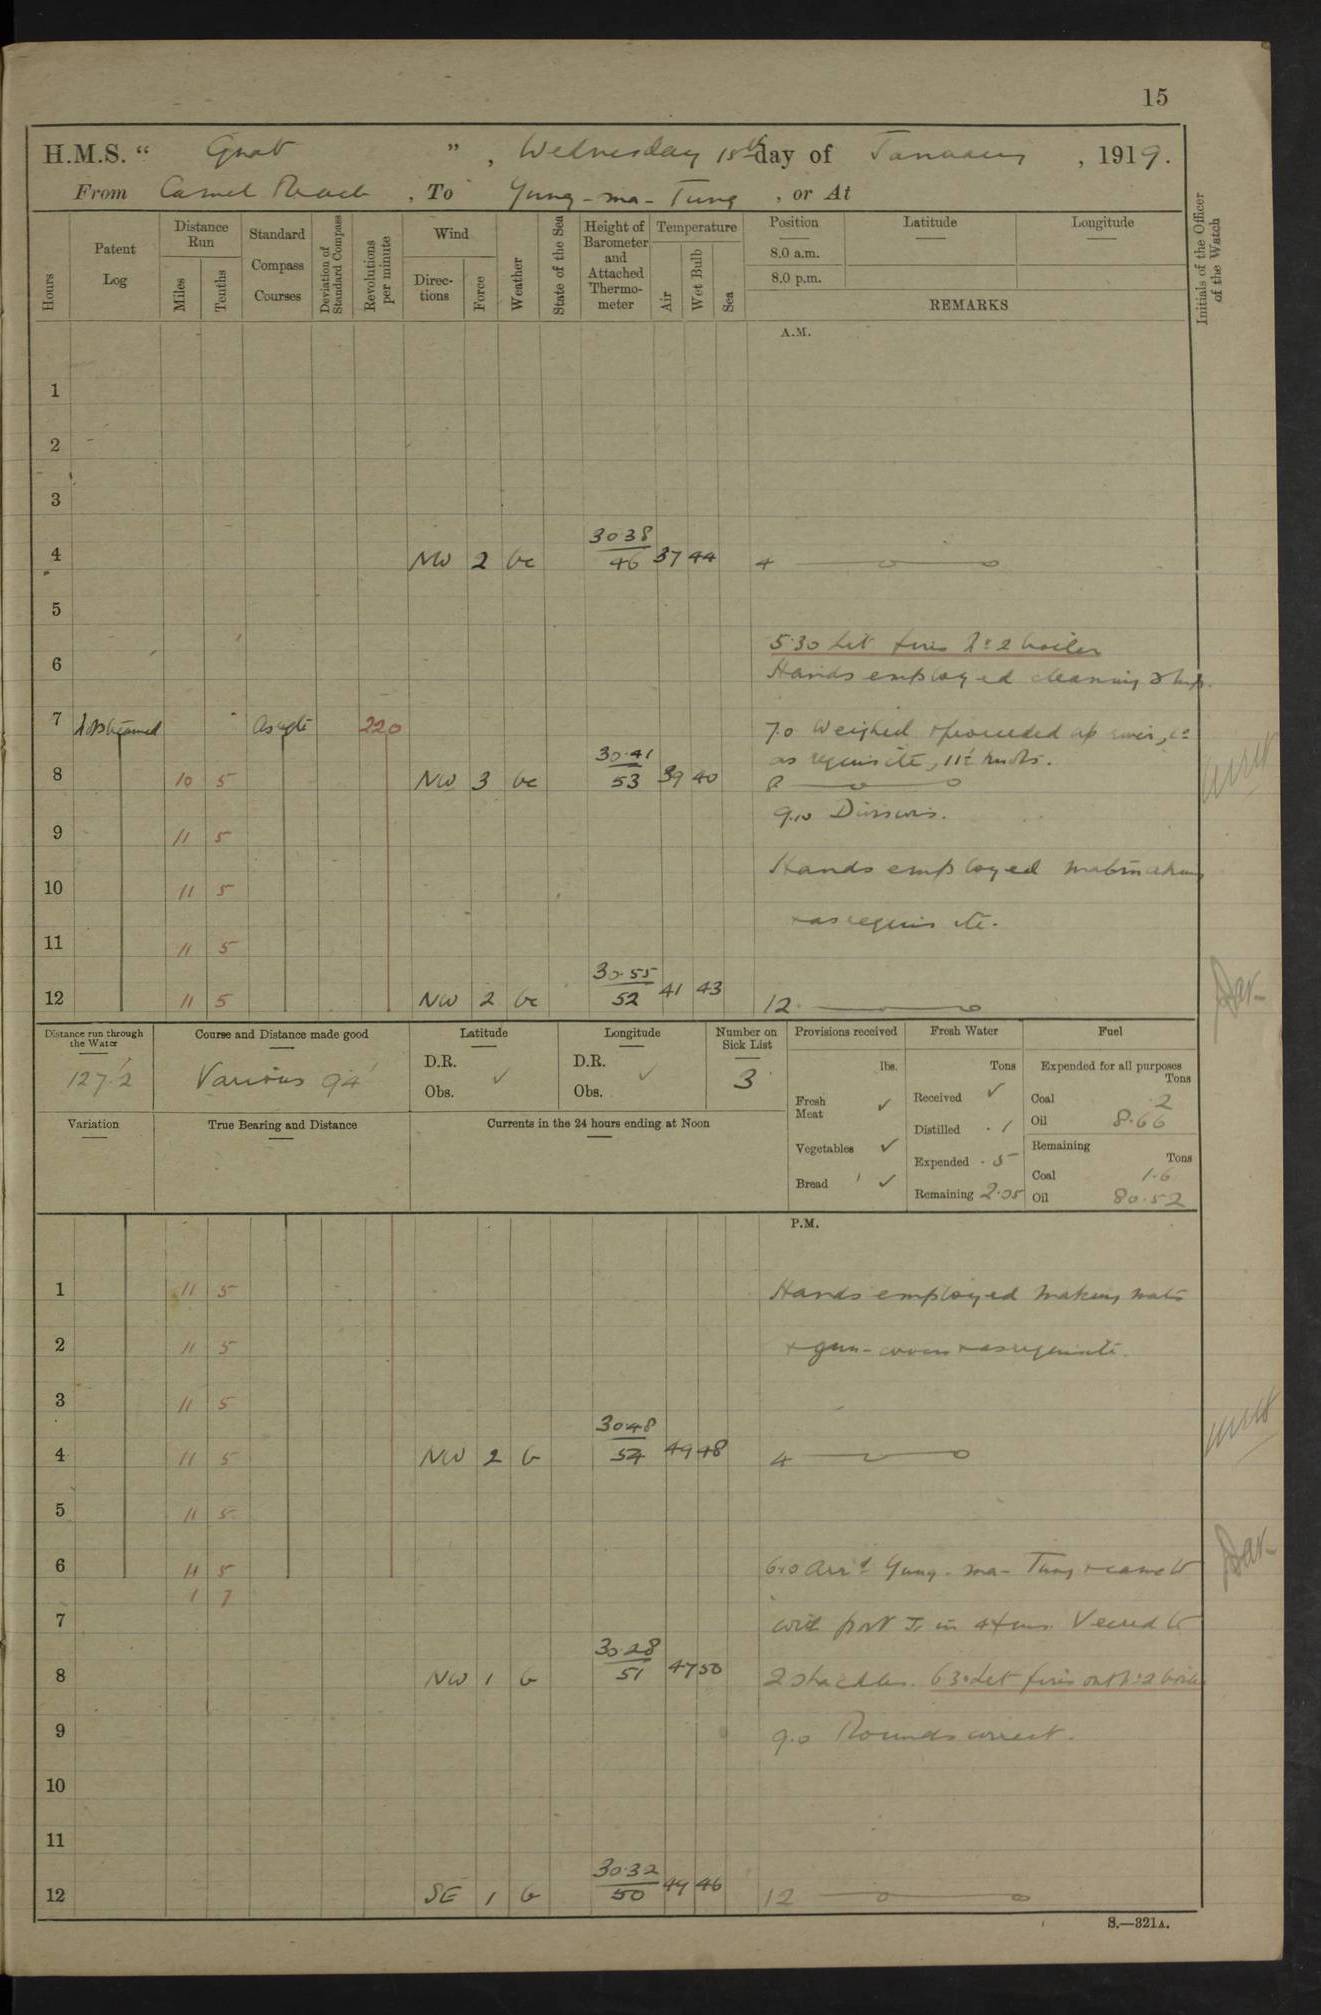 15
H.M.S. “ Gnat ” , Wednesday 15th day of January , 1919.
From Camel Reach , To Yung-ma-Tung , or At
Hours
Patent Log
Distance Run
Miles Tenths
Standard Compass Courses
Deviation of Standard Compass
Revolutions per minute
Wind
Directions Force
Weather
State of the Sea
Height of Barometer and Attached Thermometer
Temperature
Air Wet Bulb Sea
Position Latitude Longitude
8.0 a.m.
8.0 p.m.
REMARKS
Initials of the Officer of the Watch
A.M.
1
2
3
4 NW 2 bc 30.38 46 37 44 4
5
5.30 Lit fires No 2 boiler
6 Hands employed cleaning ship.
7 Not streamed As reqte 220 7.0 Weighed & proceeded up river, Co
as requisite, 11½ knots.
8 10 5 NW 3 bc 30.41 53 39 40 8
9.10 Divisions.
9 11 5
Hands employed matmaking
10 11 5
& as requisite.
11 11 5
12 11 5 NW 2 bc 30.55 52 41 43 12
Distance run through the Water
127.2
Course and Distance made good
Various 94'
Latitude
D.R.
Obs. ✓
Longitude
D.R.
Obs. ✓
Number on Sick List
3
Provisions received
lbs.
Fresh Meat ✓
Vegetables ✓
Bread ✓
Fresh Water
Tons
Received ✓
Distilled .1
Expended .5
Remaining 2.05
Fuel
Expended for all purposes
Tons
Coal .2
Oil 8.66
Remaining
Tons
Coal 1.6
Oil 80.52
Variation
True Bearing and Distance
Currents in the 24 hours ending at Noon
P.M.
1 11 5 Hands employed making mats
2 11 5 & gun-covers & as requisite.
3 11 5
4 11 5 NW 2 b 30.48 54 49 48 4
5 11 5
6 11 5 6.0 Arrd Yung-ma-Tung & came to
1 7
7 with port Ir in 4 fms. Veered to
8 NW 1 b 30.28 51 47 50 2 shackles. 6.30 Let fires out No 2 boiler
9 9.0 Rounds correct.
10
11
12 SE 1 b 30.32 50 49 46 12
S.—321A.